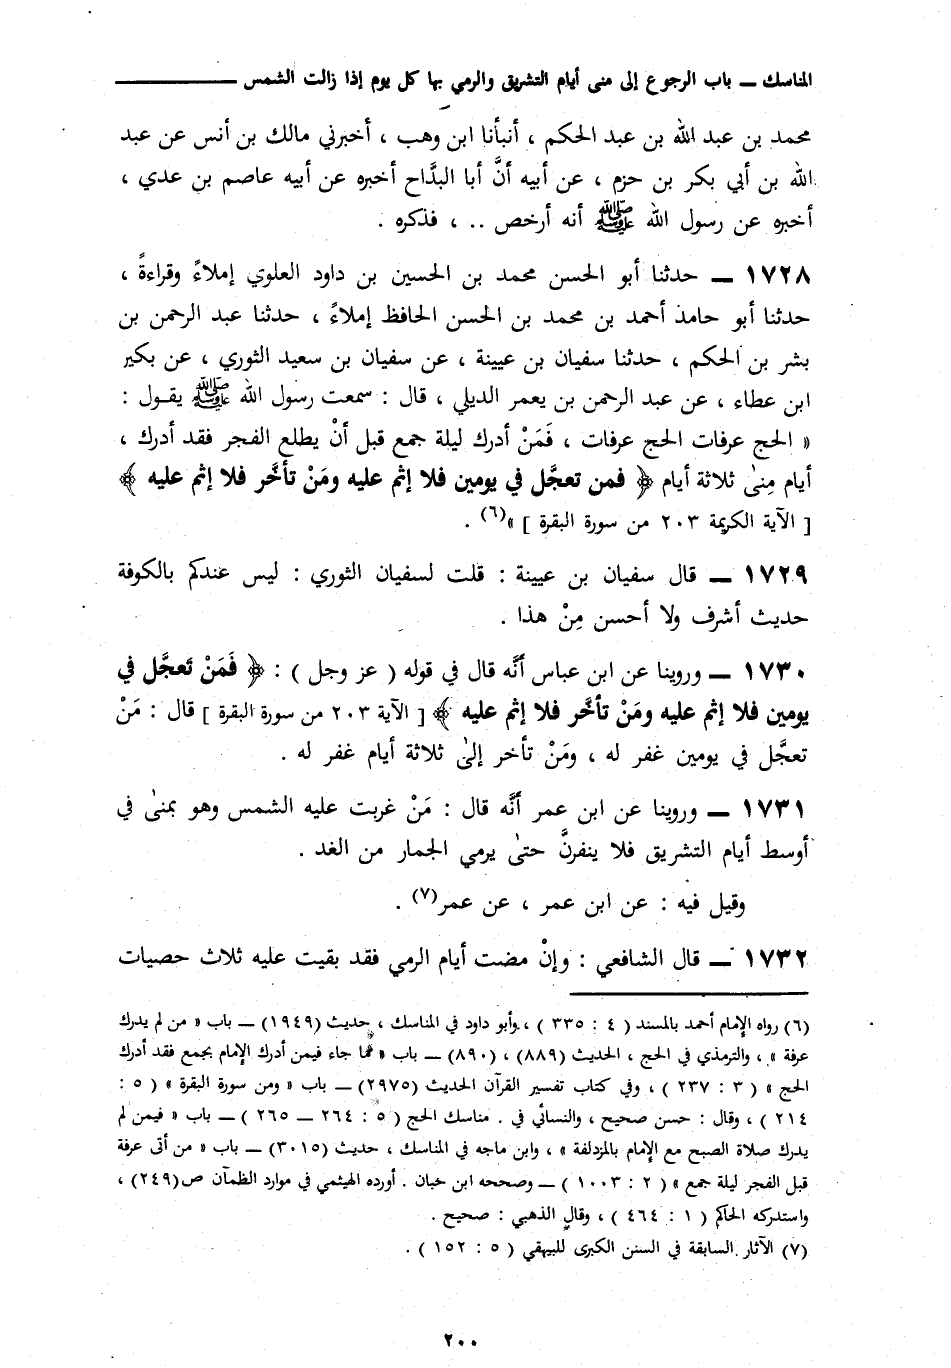 المناسك ــ باب الرجوع إلى منى أيام التشريق والرمي بها كل يوم إذا زالت الشمس
محمد بن عبد الله بن عبد الحكم ، أنبأنا ابن وهب ، أخبرني مالك بن أنس عن عبد
الله بن أبي بكر بن حزم ، عن أبيه أنَّ أبا البدَّاح أخبره عن أبيه عاصم بن عدي ،
أخبره عن رسول الله ﷺ أنه أرخص .. ، فذكره .
١٧٢٨ ــ حدثنا أبو الحسن محمد بن الحسين بن داود العلوي إملاءً وقراءةً ،
حدثنا أبو حامد أحمد بن محمد بن الحسن الحافظ إملاءً ، حدثنا عبد الرحمن بن
بشر بن الحكم ، حدثنا سفيان بن عيينة ، عن سفيان بن سعيد الثوري ، عن بكير
ابن عطاء ، عن عبد الرحمن بن يعمر الديلي ، قال : سمعت رسول الله ﷺ يقول :
« الحج عرفات الحج عرفات ، فَمَنْ أدرك ليلة جمع قبل أنْ يطلع الفجر فقد أدرك ،
أيام مِنىٰ ثلاثة أيام ﴿ فمن تعجَّل في يومين فلا إثم عليه ومَنْ تأخَّر فلا إثم عليه ﴾
[ الآية الكريمة ٢٠٣ من سورة البقرة ] »(٦) .
١٧٢٩ ــ قال سفيان بن عيينة : قلت لسفيان الثوري : ليس عندكم بالكوفة
حديث أشرف ولا أحسن مِنْ هذا .
١٧٣٠ ــ وروينا عن ابن عباس أنَّه قال في قوله ( عز وجل ) : ﴿ فَمَنْ تَعجَّل في
يومين فلا إثم عليه ومَنْ تأخَّر فلا إثم عليه ﴾ [ الآية ٢٠٣ من سورة البقرة ] قال : مَنْ
تعجَّل في يومين غفر له ، ومَنْ تأخر إلىٰ ثلاثة أيام غفر له .
١٧٣١ ــ وروينا عن ابن عمر أنَّه قال : مَنْ غربت عليه الشمس وهو بمنىٰ في
أوسط أيام التشريق فلا ينفرنَّ حتىٰ يرمي الجمار من الغد .
وقيل فيه : عن ابن عمر ، عن عمر(٧) .
١٧٣٢ ــ قال الشافعي : وإنْ مضت أيام الرمي فقد بقيت عليه ثلاث حصيات
(٦) رواه الإمام أحمد بالمسند ( ٤ : ٣٣٥ ) ، وأبو داود في المناسك ، حديث (١٩٤٩) ــ باب « من لم يدرك
عرفة » ، والترمذي في الحج ، الحديث (٨٨٩) ، (٨٩٠) ــ باب « مما جاء فيمن أدرك الإمام بجمع فقد أدرك
الحج » ( ٣ : ٢٣٧ ) ، وفي كتاب تفسير القرآن الحديث (٢٩٧٥) ــ باب « ومن سورة البقرة » ( ٥ :
٢١٤ ) ، وقال : حسن صحيح ، والنسائي في . مناسك الحج ( ٥ : ٢٦٤ ــ ٢٦٥ ) ــ باب « فيمن لم
يدرك صلاة الصبح مع الإمام بالمزدلفة » ، وابن ماجه في المناسك ، حديث (٣٠١٥) ــ باب « من أتى عرفة
قبل الفجر ليلة جمع » ( ٢ : ١٠٠٣ ) ــ وصححه ابن حبان . أورده الهيثمي في موارد الظمآن ص(٢٤٩) ،
واستدركه الحاكم ( ١ : ٤٦٤ ) ، وقال الذهبي : صحيح .
(٧) الآثار السابقة في السنن الكبرى للبيهقي ( ٥ : ١٥٢ ) .
٢٠٠